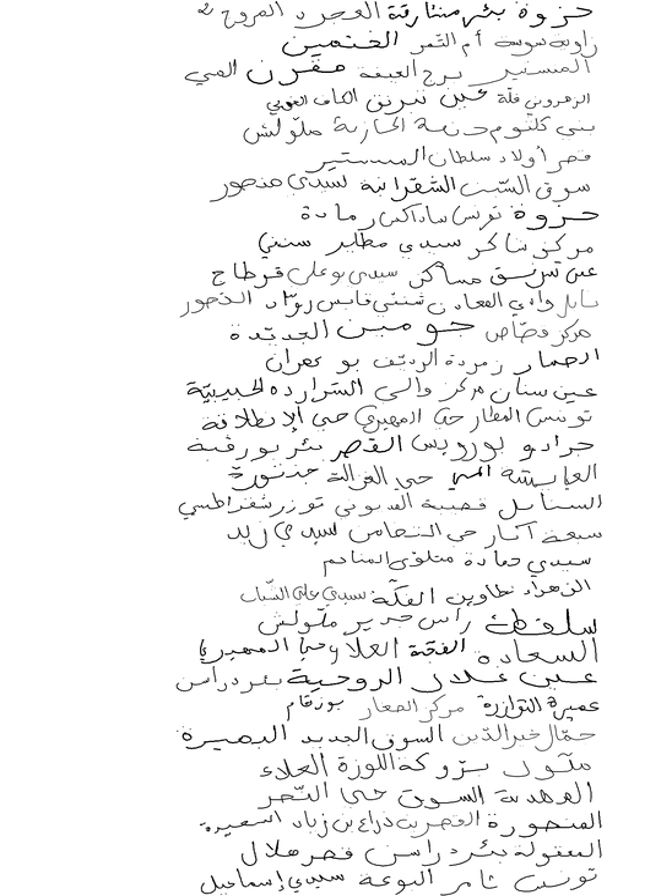 حزوة بئر مشارقة الفجر المروج 2
زاوية سوسة أم التمر الخثمين
المنستير برج العيفة مقرن المي
الزهروني قلة عين تبرنق الكاف الغربي
بني كلثوم مدنية الحازية ملّولش
قصر أولاد سلطان المنستير
سوق السبت الشقرانية لسيدي منصور
حزوة تونس ساداكس رمادة
مركز شاكر سيدي مطير سنني
عين تبرنسق مساكن سيدي بوعلي قرطاج
نابل وادي المعادن شنني قابس روّاد الدخور
مركز قصّاص جومين الجديّدة
احمار زمردة الرديف بو عمران
عين سنان مركز والي الشراردة لحبيبيّة
تونس المطار حي المهيري حي الإنطلاقة
جرادو بورويس القصر بئر بورقبة
العبابسة المي حي الغزالة خزندورة
السنابل قصيبة السوني توزر شقراطسي
سبعة آبار حي النحاس لسيدي زيد
سيدي حمادة متلوي المناجم
الزهراء تطاوين الفكّة سيدي علي الشباب
سلقطة راس جدير ملّولش
السعادة الفجة العلا وحي المهيري
عين غلال الروحية بئر دراسن
عميرة التوازرة مركز المعار بوزقام
حمّال خيرالدّين السوق الجديد البصيرة
متلّول بزوكة اللوزة العلاء
المهدية السوق حي النّصر
المنصورة القصرين ذراع بن زياد السعيدة
البقولة بئر دراسن قصر هلال
تونس ثامر البوعة سيدي إسماعيل